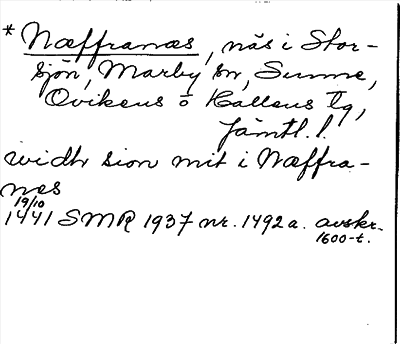 * Næffranæs, näs i Stor-
sjön, Marby sn, Sunne,
Ovikens o Hallens tg,
Jämtl. l.
widh sion mit i Næffra-
nes
19/10
1441 SMR 1937 nr. 1492a. avskr.
1600-t.